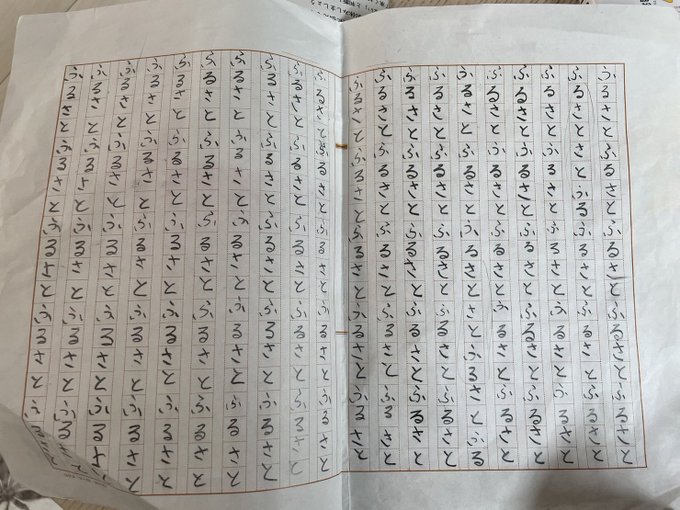 ふるさとふるさとふるさとふるさとふるさと
ふるさとさとふるふるさとふるさとふるさと
ふるさとふるさとふるさとふるさとふるさと
ふるさとふるさとふるさとふるさとふるさと
ふるさとふるさとふるさとふるさとふるさと
ふるさとふるさとふるさとさとふるさとふる
ふるさとふるさとふるさとふるさとふるさと
ふるさとふるさとふるさとふるさとふるさと
ふるさとふるさとふるさとふるさとふるさと
ふるさとふるさとふるさとふるさとふるさと
ふるさとふるさとふるさとふるさとふるさと
ふるさとふるさとふるさとふるさとふるさと
ふるさとふるさとふるさとふるさとふるさと
ふるさとふるさとふるさとふるさとふるさと
ふるさとふるさとふるさとふるさとふるさと
ふるさとふるさとふるさとふるさとふるさと
ふるさとふるさとふるさとふるさとふるさと
ふるさとふるさとふるさとふるさとふるさと
ふるさとふるさとふるさとふるさとふるさと
ふるさとふるさとふるさとふるさとふるさと